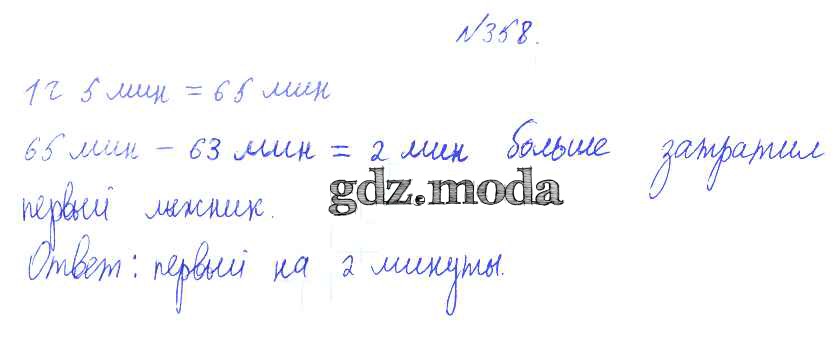 №358.
1ч 5 мин = 65 мин
65 мин - 63 мин = 2 мин больше затратил
первый лыжник.
gdz.moda
Ответ: первый на 2 минуты.